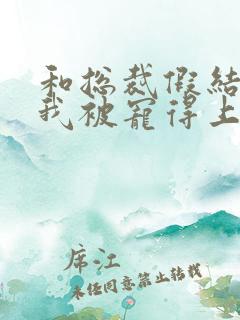 和总裁假结
我被宠得上
席江
未经同意禁止转载